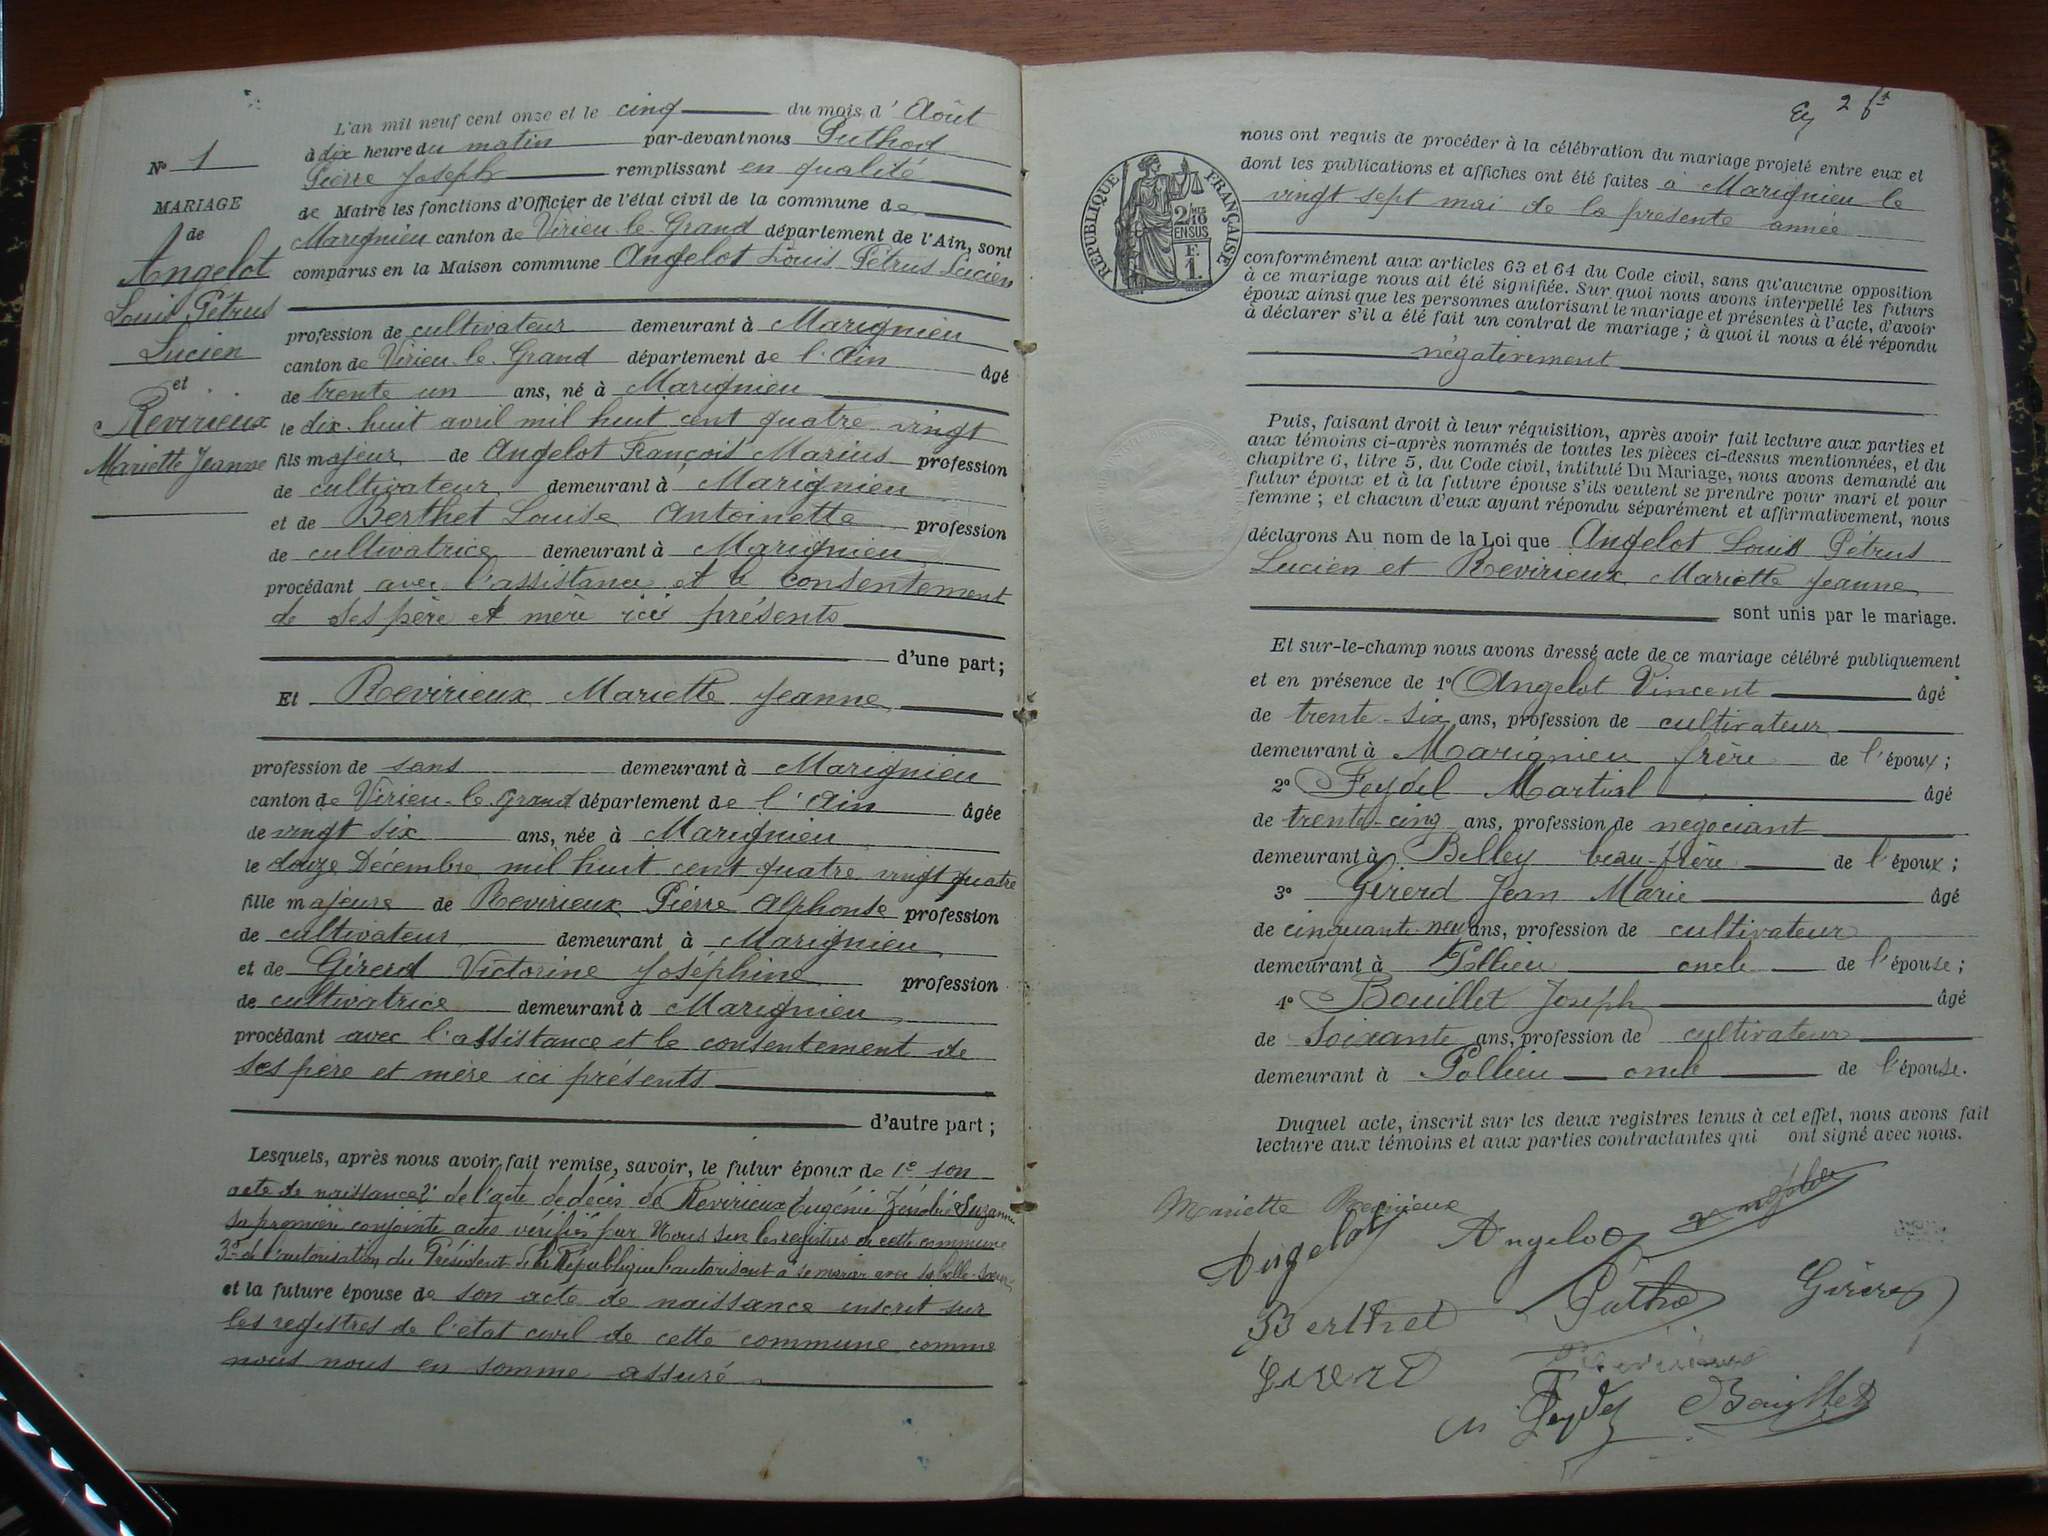 L'an mil neuf cent onze et le cinq du mois d'Août
à dix heure du matin par-devant nous Puthod
Pierre Joseph remplissant en qualité
de Maire les fonctions d'Officier de l'état civil de la commune de
Marignieu canton de Virieu-le-Grand département de l'Ain, sont
comparus en la Maison commune Angelot Louis Pétrus Lucien
N° 1
MARIAGE
de
Angelot
Louis Pétrus
Lucien
et
Revirieux
Mariette Jeanne
profession de cultivateur demeurant à Marignieu
canton de Virieu-le-Grand département de l'Ain âgé
de trente un ans, né à Marignieu
le dix-huit avril mil huit cent quatre vingt
fils majeur de Angelot François Marius profession
de cultivateur demeurant à Marignieu
et de Berthet Louise Antoinette profession
de cultivatrice demeurant à Marignieu
procédant avec l'assistance et le consentement
de ses père et mère ici présents
d'une part;
Et Revirieux Mariette Jeanne
profession de sans demeurant à Marignieu
canton de Virieu-le-Grand département de l'Ain âgée
de vingt six ans, née à Marignieu
le douze Décembre mil huit cent quatre vingt quatre
fille majeure de Revirieux Pierre Alphonse profession
de cultivateur demeurant à Marignieu
et de Girerd Victorine Joséphine profession
de cultivatrice demeurant à Marignieu
procédant avec l'assistance et le consentement de
ses père et mère ici présents
d'autre part;
Lesquels, après nous avoir fait remise, savoir, le futur époux de 1° son
acte de naissance 2° de l'acte de décès de Revirieux Eugénie Zénobie Suzanne
sa première conjointe actes vérifiés par Nous sur les registres de cette commune
3° de l'autorisation du Président de la République l'autorisant à se marier avec sa belle-sœur
et la future épouse de son acte de naissance inscrit sur
les registres de l'état civil de cette commune comme
nous nous en somme assuré
2
nous ont requis de procéder à la célébration du mariage projeté entre eux et
dont les publications et affiches ont été faites à Marignieu le
vingt sept mai de la présente année
RÉPUBLIQUE FRANÇAISE
2/10
EN SUS
F.
1.
conformément aux articles 63 et 64 du Code civil, sans qu'aucune opposition
à ce mariage nous ait été signifiée. Sur quoi nous avons interpellé les futurs
époux ainsi que les personnes autorisant le mariage et présentes à l'acte, d'avoir
à déclarer s'il a été fait un contrat de mariage; à quoi il nous a été répondu
négativement
Puis, faisant droit à leur réquisition, après avoir fait lecture aux parties et
aux témoins ci-après nommés de toutes les pièces ci-dessus mentionnées, et du
chapitre 6, titre 5, du Code civil, intitulé Du Mariage, nous avons demandé au
futur époux et à la future épouse s'ils veulent se prendre pour mari et pour
femme; et chacun d'eux ayant répondu séparément et affirmativement, nous
déclarons Au nom de la Loi que Angelot Louis Pétrus
Lucien et Revirieux Mariette Jeanne
sont unis par le mariage.
Et sur-le-champ nous avons dressé acte de ce mariage célébré publiquement
et en présence de 1° Angelot Vincent âgé
de trente-six ans, profession de cultivateur
demeurant à Marignieu frère de l'époux;
2° Feydel Martial âgé
de trente-cinq ans, profession de négociant
demeurant à Belley beau-frère de l'époux;
3° Girerd Jean Marie âgé
de cinquante-neuf ans, profession de cultivateur
demeurant à Pollieu oncle de l'épouse;
4° Bouillet Joseph âgé
de soixante ans, profession de cultivateur
demeurant à Pollieu oncle de l'épouse.
Duquel acte, inscrit sur les deux registres tenus à cet effet, nous avons fait
lecture aux témoins et aux parties contractantes qui ont signé avec nous.
Mariette Revirieux
Angelot Angelot Angelot
Berthet Puthod Girerd
Girerd Revirieux
M Feydel Bouillet